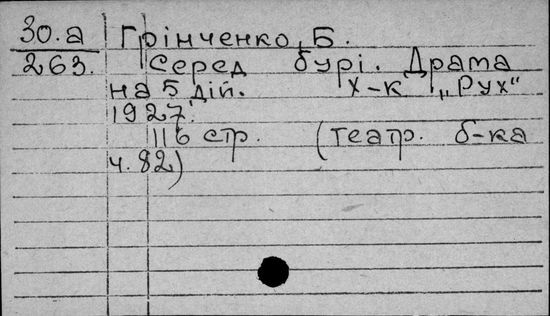 30.а Грінченко, Б.
263. Серед бурі. Драма
на 5 дій. Х-к „Рух"
1927.
116 стр. (театр. б-ка
ч. 82)